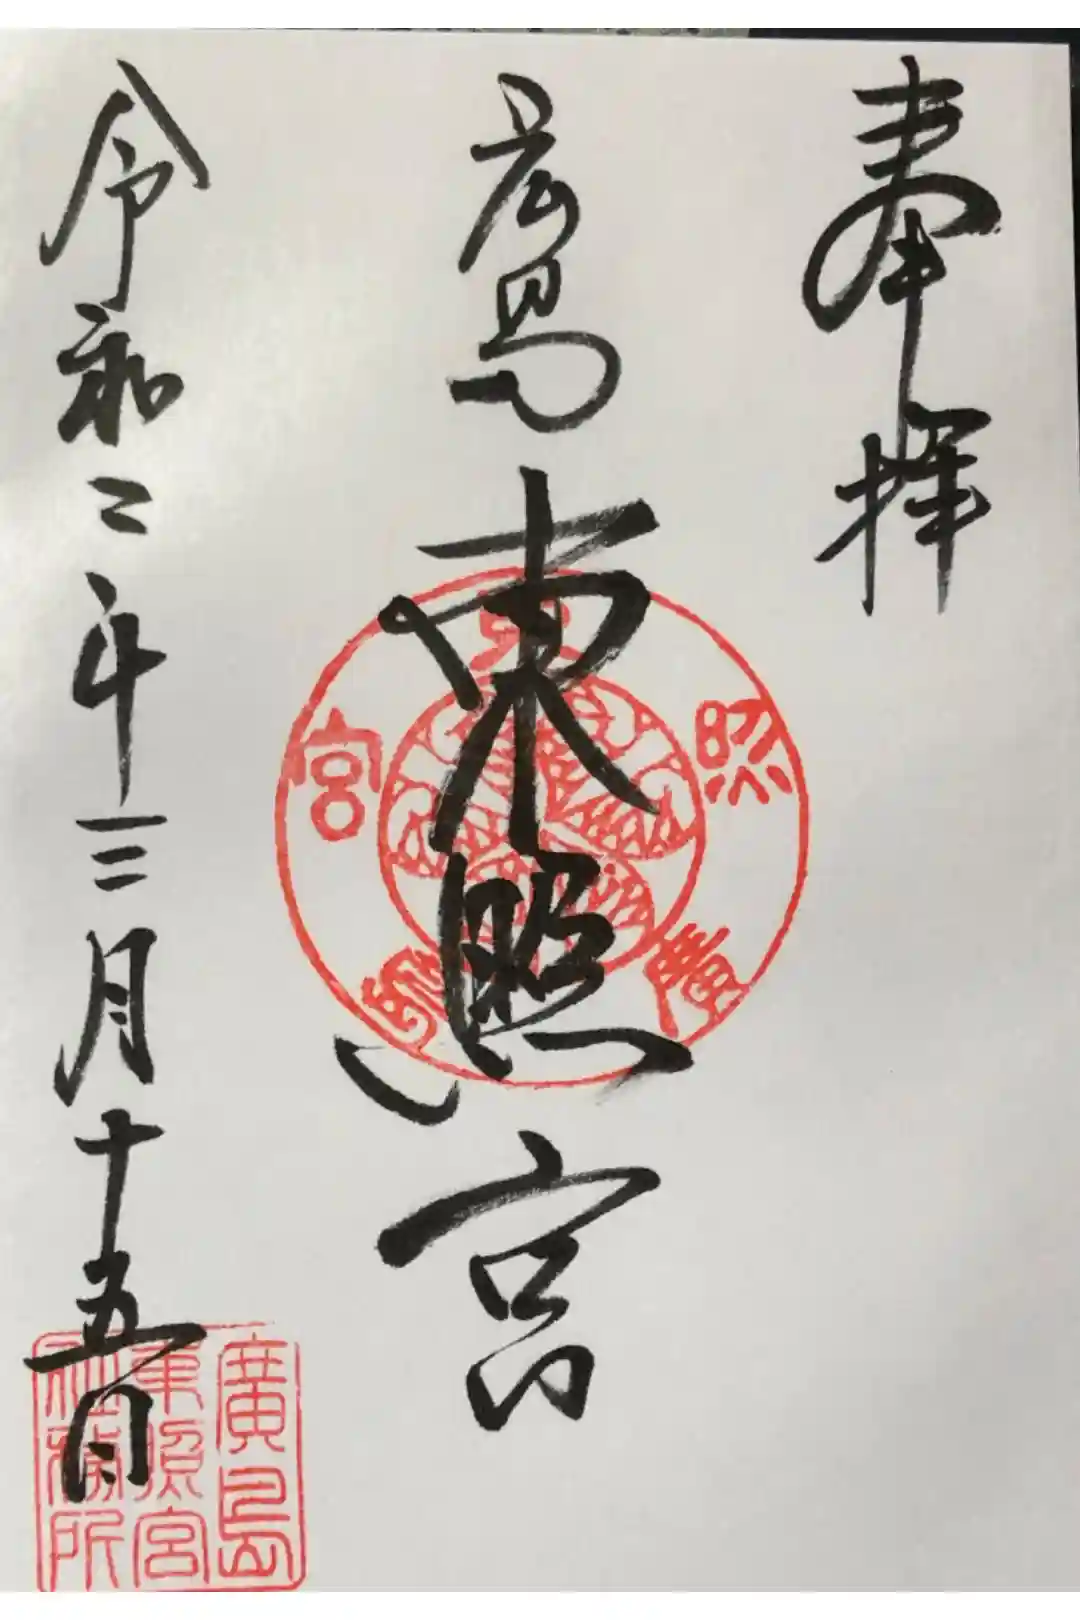 奉拝
広島東照宮
令和二年三月十五日
廣島東照宮
廣島
東照宮
社務所